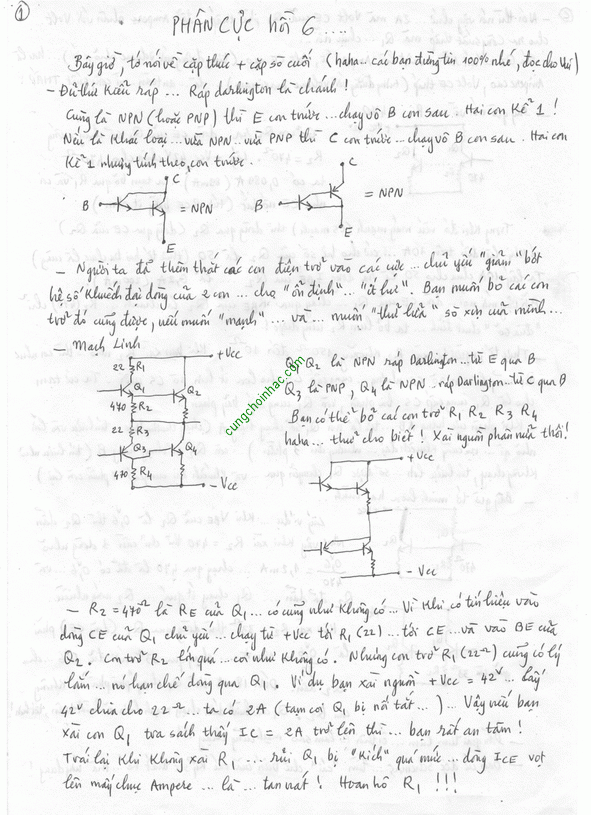 ①
PHÂN CỰC hồi 6 .....
Bây giờ, tớ nói về cặp thúc + cặp sò cuối (haha.. các bạn đừng tin 100% nhé, đọc cho vui)
- Đủ thứ kiểu ráp ... Ráp darlington là chánh !
Cùng là NPN (hoặc PNP) thì E con trước ... chạy vô B con sau. Hai con kể 1 !
Nếu là khác loại ... vừa NPN.. vừa PNP thì C con trước ... chạy vô B con sau. Hai con
kể 1 nhưng tính theo con trước.
C C
B = NPN B = NPN
E E
- Người ta đã thêm thắt các con điện trở vào các cực ... chủ yếu "giảm" bớt
hệ số khuếch đại dòng của 2 con ... cho "ổn định".. "ít hư". Bạn muốn bỏ các con
trở đó cũng được, nếu muốn "mạnh" ... và ... muốn "thử lửa" sò xịn của mình ...
- Mạch Linh
22 R1 +Vcc
Q1 Q2
470 R2
22 R3
Q3 Q4
470 R4
- Vcc
Q1 Q2 là NPN ráp Darlington... từ E qua B
Q3 là PNP, Q4 là NPN ráp Darlington... từ C qua B
Bạn có thể bỏ các con trở R1 R2 R3 R4
haha ... thử cho biết ! Xài nguồn phân nửa thôi !
+Vcc
- Vcc
cungchoinhac.com
- R2 = 470Ω là RE của Q1 ... có cũng như không có ... Vì khi có tín hiệu vào
dòng CE của Q1 chủ yếu ... chạy từ +Vcc tới R1 (22) ... tới CE ... và vào BE của
Q2. Con trở R2 lớn quá ... coi như không có. Nhưng con trở R1 (22Ω) cũng có lý
lắm ... nó hạn chế dòng qua Q1. Ví dụ bạn xài nguồn +Vcc = 42V ... Lấy
42V chia cho 22Ω ... ta có 2A (tạm coi Q1 bị nối tắt ...) ... Vậy nếu bạn
xài con Q1 tra sách thấy IC = 2A trở lên thì ... bạn rất an tâm !
Trái lại khi không xài R1 ... rủi Q1 bị "kích" quá mức ... dòng ICE vọt
lên mấy chục Ampere ... là ... tan nát ! Hoan hô R1 !!!